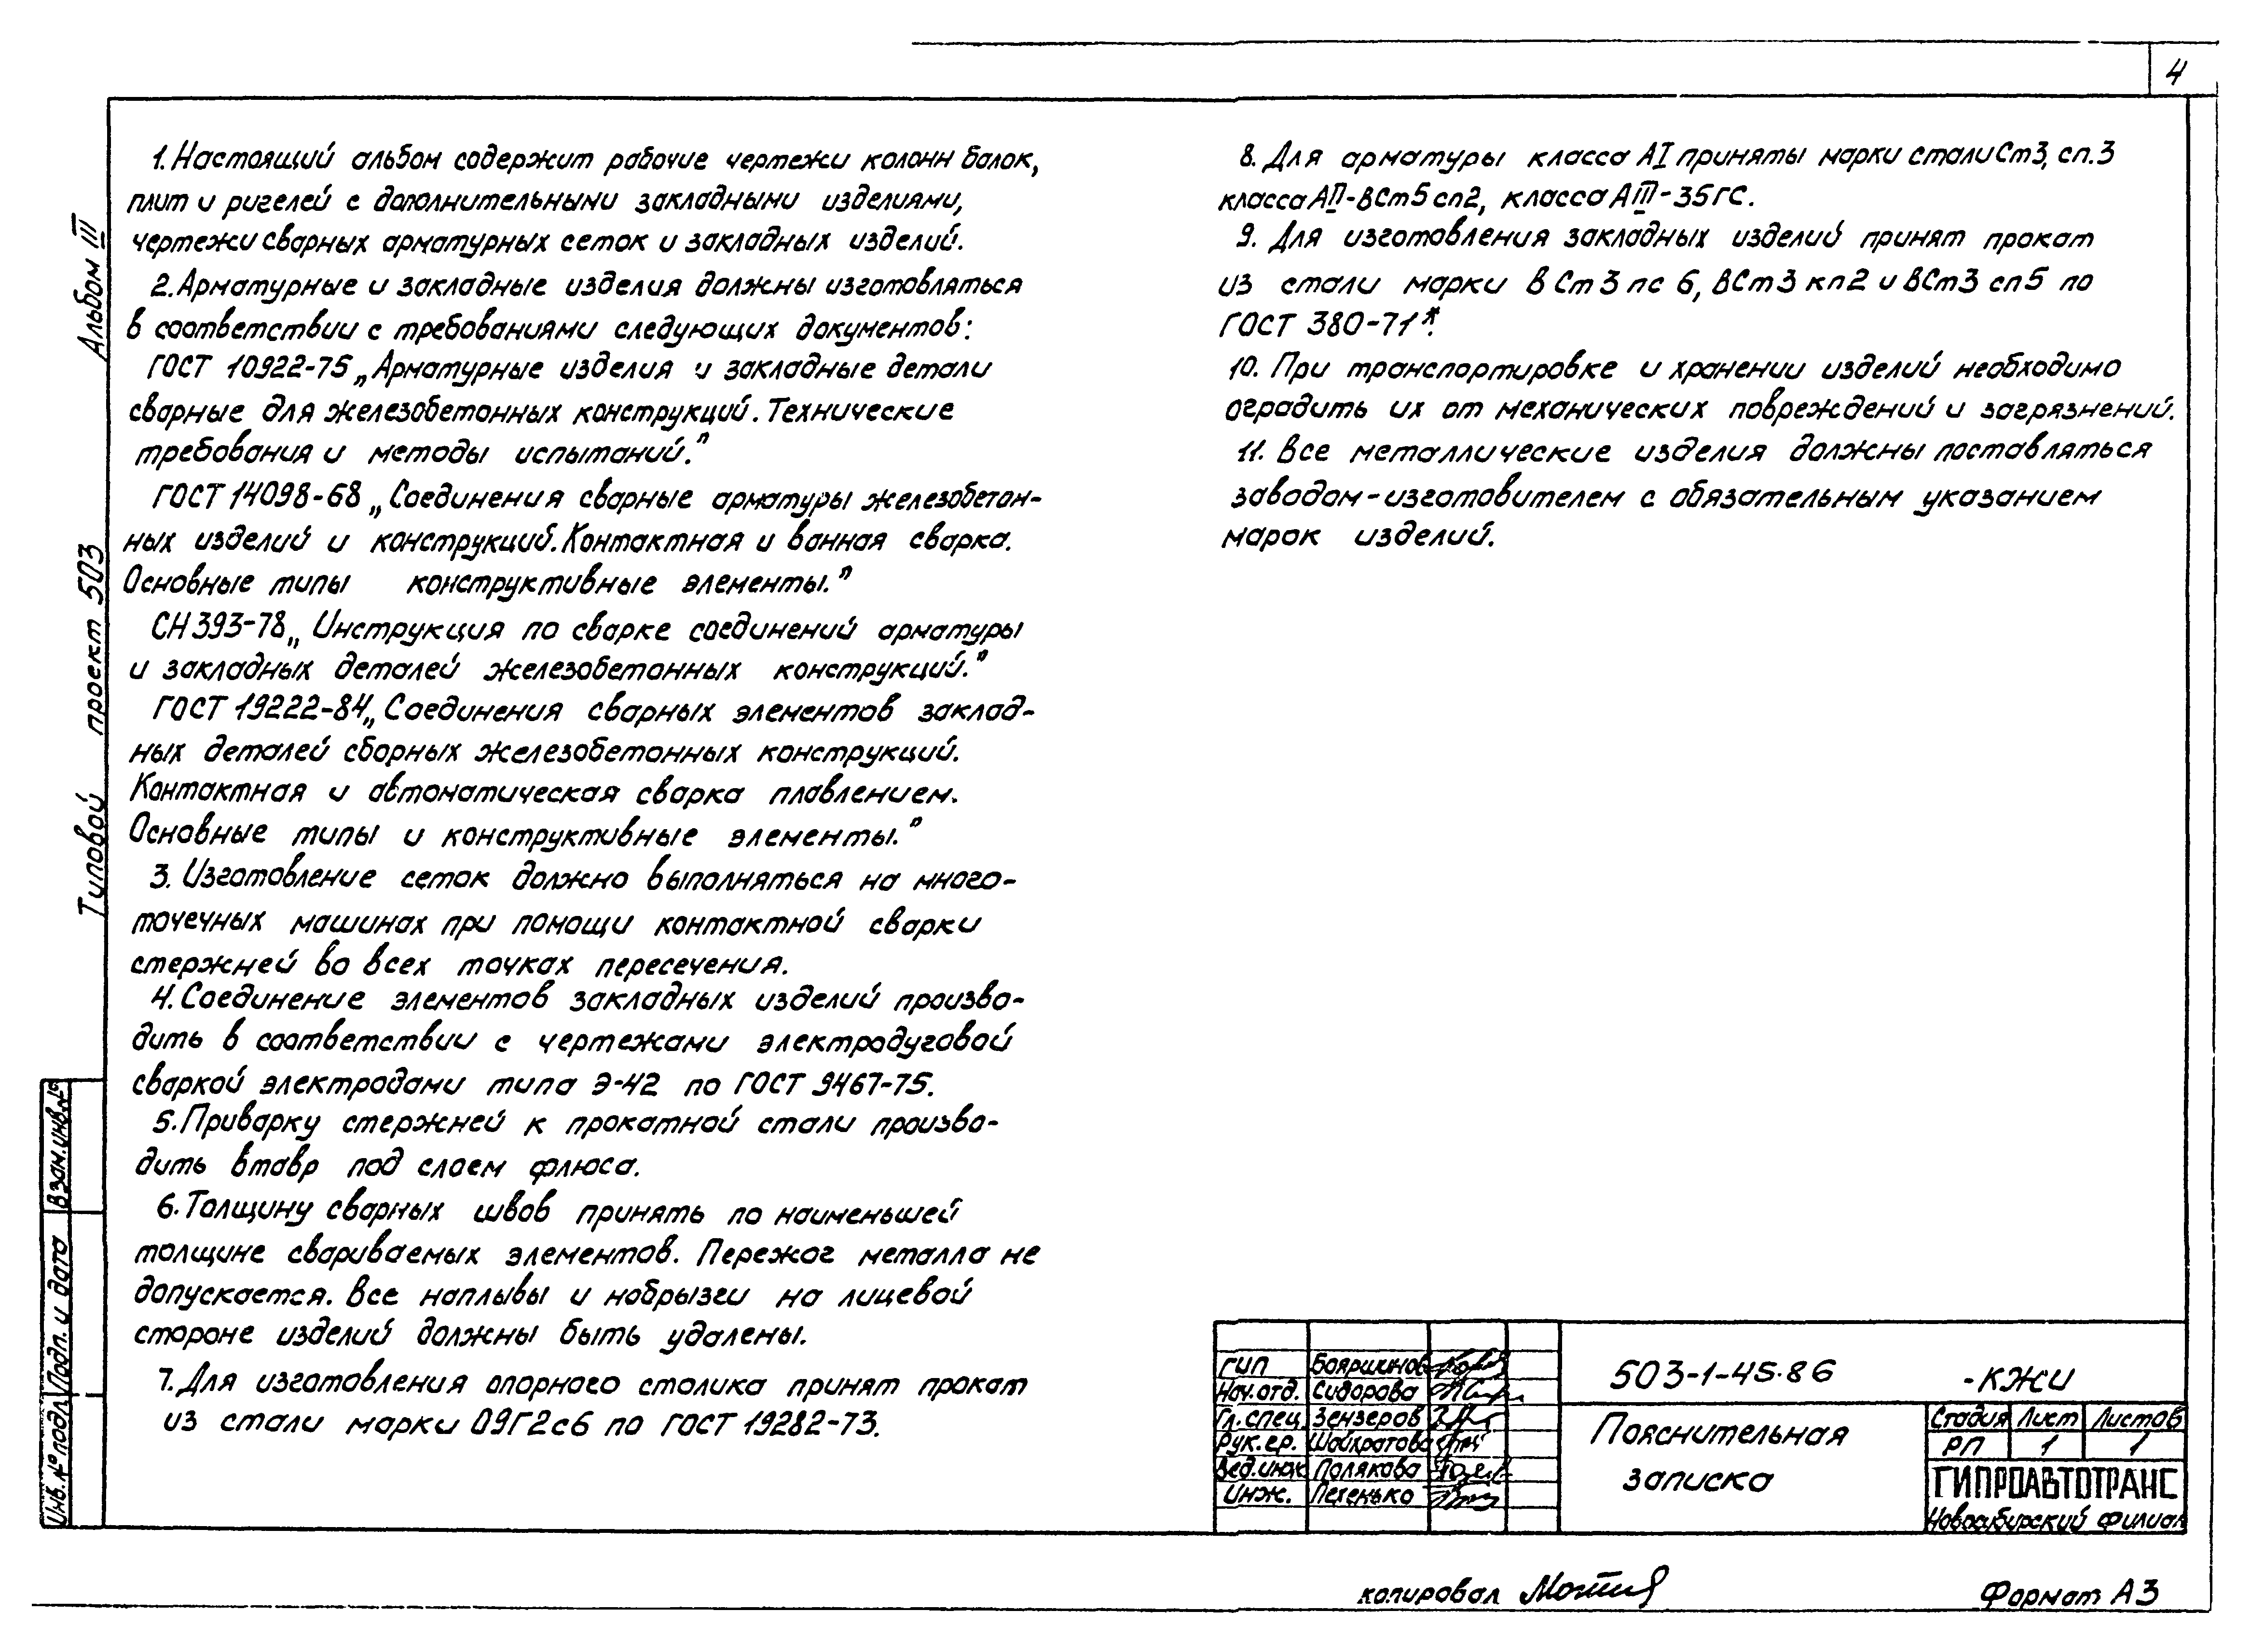 4
1. Настоящий альбом содержит рабочие чертежи колонн балок,
плит и ригелей с дополнительными закладными изделиями,
чертежи сварных арматурных сеток и закладных изделий.
2. Арматурные и закладные изделия должны изготовляться
в соответствии с требованиями следующих документов:
ГОСТ 10922-75 „Арматурные изделия и закладные детали
сварные для железобетонных конструкций. Технические
требования и методы испытаний."
ГОСТ 14098-68 „Соединения сварные арматуры железобетон-
ных изделий и конструкций. Контактная и ванная сварка.
Основные типы конструктивные элементы."
СН 393-78 „Инструкция по сварке соединений арматуры
и закладных деталей железобетонных конструкций."
ГОСТ 19222-84 „Соединения сварных элементов заклад-
ных деталей сборных железобетонных конструкций.
Контактная и автоматическая сварка плавлением.
Основные типы и конструктивные элементы."
3. Изготовление сеток должно выполняться на много-
точечных машинах при помощи контактной сварки
стержней во всех точках пересечения.
4. Соединение элементов закладных изделий произво-
дить в соответствии с чертежами электродуговой
сваркой электродами типа Э-42 по ГОСТ 9467-75.
5. Приварку стержней к прокатной стали произво-
дить втавр под слоем флюса.
6. Толщину сварных швов принять по наименьшей
толщине свариваемых элементов. Пережог металла не
допускается. Все наплывы и набрызги на лицевой
стороне изделий должны быть удалены.
7. Для изготовления опорного столика принят прокат
из стали марки 09Г2с6 по ГОСТ 19282-73.
8. Для арматуры класса АI приняты марки стали Ст3, сп.3
класса АII-ВСт5сп2, класса АIII-35ГС.
9. Для изготовления закладных изделий принят прокат
из стали марки ВСт3пс6, ВСт3кп2 и ВСт3сп5 по
ГОСТ 380-71*.
10. При транспортировке и хранении изделий необходимо
оградить их от механических повреждений и загрязнений.
11. Все металлические изделия должны поставляться
заводом-изготовителем с обязательным указанием
марок изделий.
Типовой проект 503 Альбом III
Инв. № подл. Подп. и дата Взам. инв. №
ГИП Бояршинов
Нач. отд. Сидорова
Гл. спец. Зензеров
Рук. гр. Шайхратова
Вед. инж. Полякова
Инж. Петенько
503-1-45.86 -КЖИ
Пояснительная
записка
Стадия Лист Листов
РП 1 1
ГИПРОАВТОТРАНС
Новосибирский филиал
копировал
Формат А3